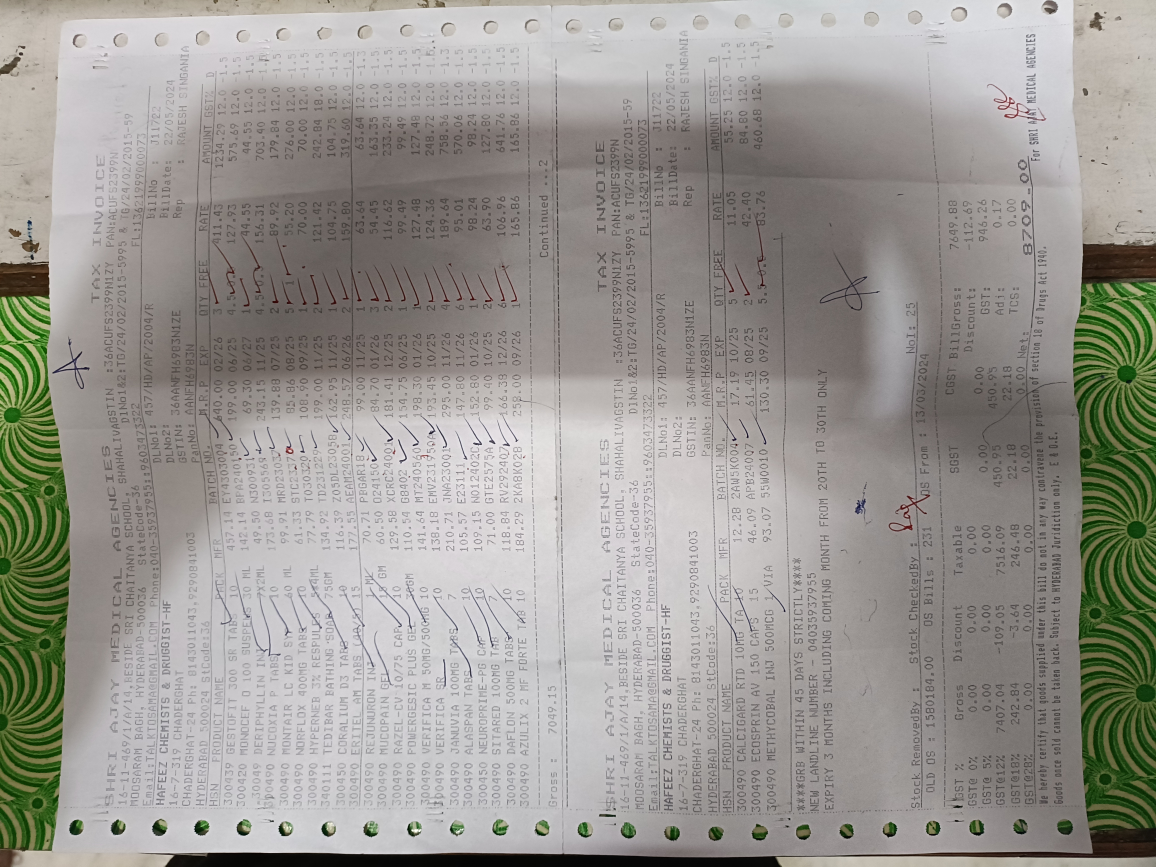 SHRI AJAY MEDICAL AGENCIES TAX INVOICE
16-11-469/1/A/14,BESIDE SRI CHAITANYA SCHOOL, SHAHALIVAGSTIN :36ACUFS2399N1ZY PAN:ACUFS2399N
MOOSARAM BAGH, HYDERABAD-500036 StateCode-36 DlNo1&2:TG/24/02/2015-5995 & TG/24/02/2015-59
Email:TALKTOSAMA@GMAIL.COM Phone:040-35937955::9603473322 FL:13621999000073
HAFEEZ CHEMISTS & DRUGGIST-HF DLNo1: 457/HD/AP/2004/R BillNo : J11722
16-7-319 CHADERGHAT DLNo2: BillDate: 22/05/2024
CHADERGHAT-24 Ph: 8143011043,9290841003 GSTIN: 36AANFH6983N1ZE Rep : RAJESH SINGANIA
HYDERABAD 500024 StCode:36 PanNo: AANFH6983N
HSN PRODUCT NAME PACK MFR BATCH NO. M.R.P EXP QTY FREE RATE AMOUNT GST% D
300439 GESTOFIT 300 SR TABS 10 457.14 640.00 02/26 3 411.43 1234.29 12.0 -1.5
300420 MONDEF C 100 SUSPEN 30 ML 142.14 199.00 06/25 4.5 127.93 575.69 12.0 -1.5
30049 DERIPHYLLIN INJ 2ML 49.50 69.30 06/27 1 44.55 44.55 12.0 -1.5
300490 NUCOXIA P TABS 10 173.68 243.15 11/25 4.5 156.31 703.40 12.0 -1.5
300490 MONTAIR LC KID SY 60 ML 99.91 139.88 07/25 2 89.92 179.84 12.0 -1.5
300490 NORFLOX 400MG TABS 10 61.33 85.86 08/25 5 55.20 276.00 12.0 -1.5
300490 HYPERNEB 3% RESPULES 5*4ML 77.79 108.90 09/25 1 70.00 70.00 12.0 -1.5
340111 TEDIBAR BATHING SOAP 75GM 134.92 199.00 11/25 2 121.42 242.84 18.0 -1.5
300450 CORALIUM D3 TABS 10 116.39 162.95 1 104.75 104.75 12.0 -1.5
300490 ERITEL TABS 15 177.55 AEAM24001 248.57 06/26 2 159.80 319.60 12.0 -1.5
300490 REJUNURON INJ 1 ML 70.71 99.00 11/25 1 63.64 63.64 12.0 -1.5
300490 MUCOPAIN GEL 15 GM 60.50 D24150 84.70 01/26 3 54.45 163.35 12.0 -1.5
300490 RAZEL-CV 10/75 CAP 10 129.58 181.41 12/25 2 116.62 233.24 12.0 -1.5
300490 POWERGESIC PLUS GEL 30GM 110.54 G8402 154.75 06/25 1 99.49 99.49 12.0 -1.5
300490 VERIFICA M 50MG/500MG 10 141.64 198.30 01/26 1 127.48 127.48 12.0 -1.5
300490 VERIFICA SR 10 138.18 193.45 10/25 2 124.36 248.72 12.0 -1.5
300490 JANUVIA 100MG TABS 7 210.71 295.00 11/26 4 189.64 758.56 12.0 -1.3
300490 ALASPAN TABS 10 105.57 E23111 147.80 11/26 6 95.01 570.06 12.0 -1.5
300450 NEUROPRIME-PG CAP 10 109.15 152.80 01/26 1 98.24 98.24 12.0 -1.5
300490 SITARED 100MG TAB 7 71.00 99.40 10/25 2 63.90 127.80 12.0 -1.5
320690 DAFLON 500MG TABS 10 118.84 166.38 12/26 6 106.96 641.76 12.0 -1.5
300490 AZULIX 2 MF FORTE TAB 10 184.29 258.00 09/26 1 165.86 165.86 12.0 -1.5
Gross : 7049.15 Continued ...2
SHRI AJAY MEDICAL AGENCIES TAX INVOICE
16-11-469/1/A/14,BESIDE SRI CHAITANYA SCHOOL, SHAHALIVAGSTIN :36ACUFS2399N1ZY PAN:ACUFS2399N
MOOSARAM BAGH, HYDERABAD-500036 StateCode-36 DlNo1&2:TG/24/02/2015-5995 & TG/24/02/2015-59
Email:TALKTOSAMA@GMAIL.COM Phone:040-35937955::9603473322 FL:13621999000073
HAFEEZ CHEMISTS & DRUGGIST-HF DLNo1: 457/HD/AP/2004/R BillNo : J11722
16-7-319 CHADERGHAT DLNo2: BillDate: 22/05/2024
CHADERGHAT-24 Ph: 8143011043,9290841003 GSTIN: 36AANFH6983N1ZE Rep : RAJESH SINGANIA
HYDERABAD 500024 StCode:36 PanNo: AANFH6983N
HSN PRODUCT NAME PACK MFR BATCH NO. M.R.P EXP QTY FREE RATE AMOUNT GST% D
300490 CALCIGARD RTD 10MG TA 10 12.28 2RWSK004 17.19 10/25 5 11.05 55.25 12.0 -1.5
300490 ECOSPRIN AV 150 CAPS 15 46.09 APB24007 61.45 08/25 2 42.40 84.80 12.0 -1.5
300490 METHYCOBAL INJ 500MCG 1 VIA 93.07 55W0010 130.30 09/25 5. 83.76 460.68 12.0 -1.5
****GRB WITHIN 45 DAYS STRICTLY****
NEW LANDLINE NUMBER - 04035937955
EXPIRY 3 MONTHS INCLUDING COMING MONTH FROM 20TH TO 30TH ONLY
Stock RemovedBy : Stock CheckedBy : NoI: 25
OLD OS : 1580184.00 OS Bills : 231 OS From : 13/03/2024
GST % Gross Discount Taxable SGST CGST BillGross: 7649.88
GST@ 0% 0.00 0.00 0.00 0.00 0.00 Discount: -112.69
GST@ 5% 0.00 0.00 0.00 0.00 0.00 GST: 946.26
GST@12% 7407.04 -109.05 7516.09 450.95 450.95 Adj: 0.17
GST@18% 242.84 -3.64 246.48 22.18 22.18 TCS: 0.00
GST@28% 0.00 0.00 0.00 0.00 0.00 Net: 8709-00
We hereby certify that goods supplied under this bill do not in any way contravene the provision of section 18 of Drugs Act 1940.
Goods once sold cannot be taken back. Subject to HYDERABAD Juridiction only. E & O.E. For SHRI AJAY MEDICAL AGENCIES